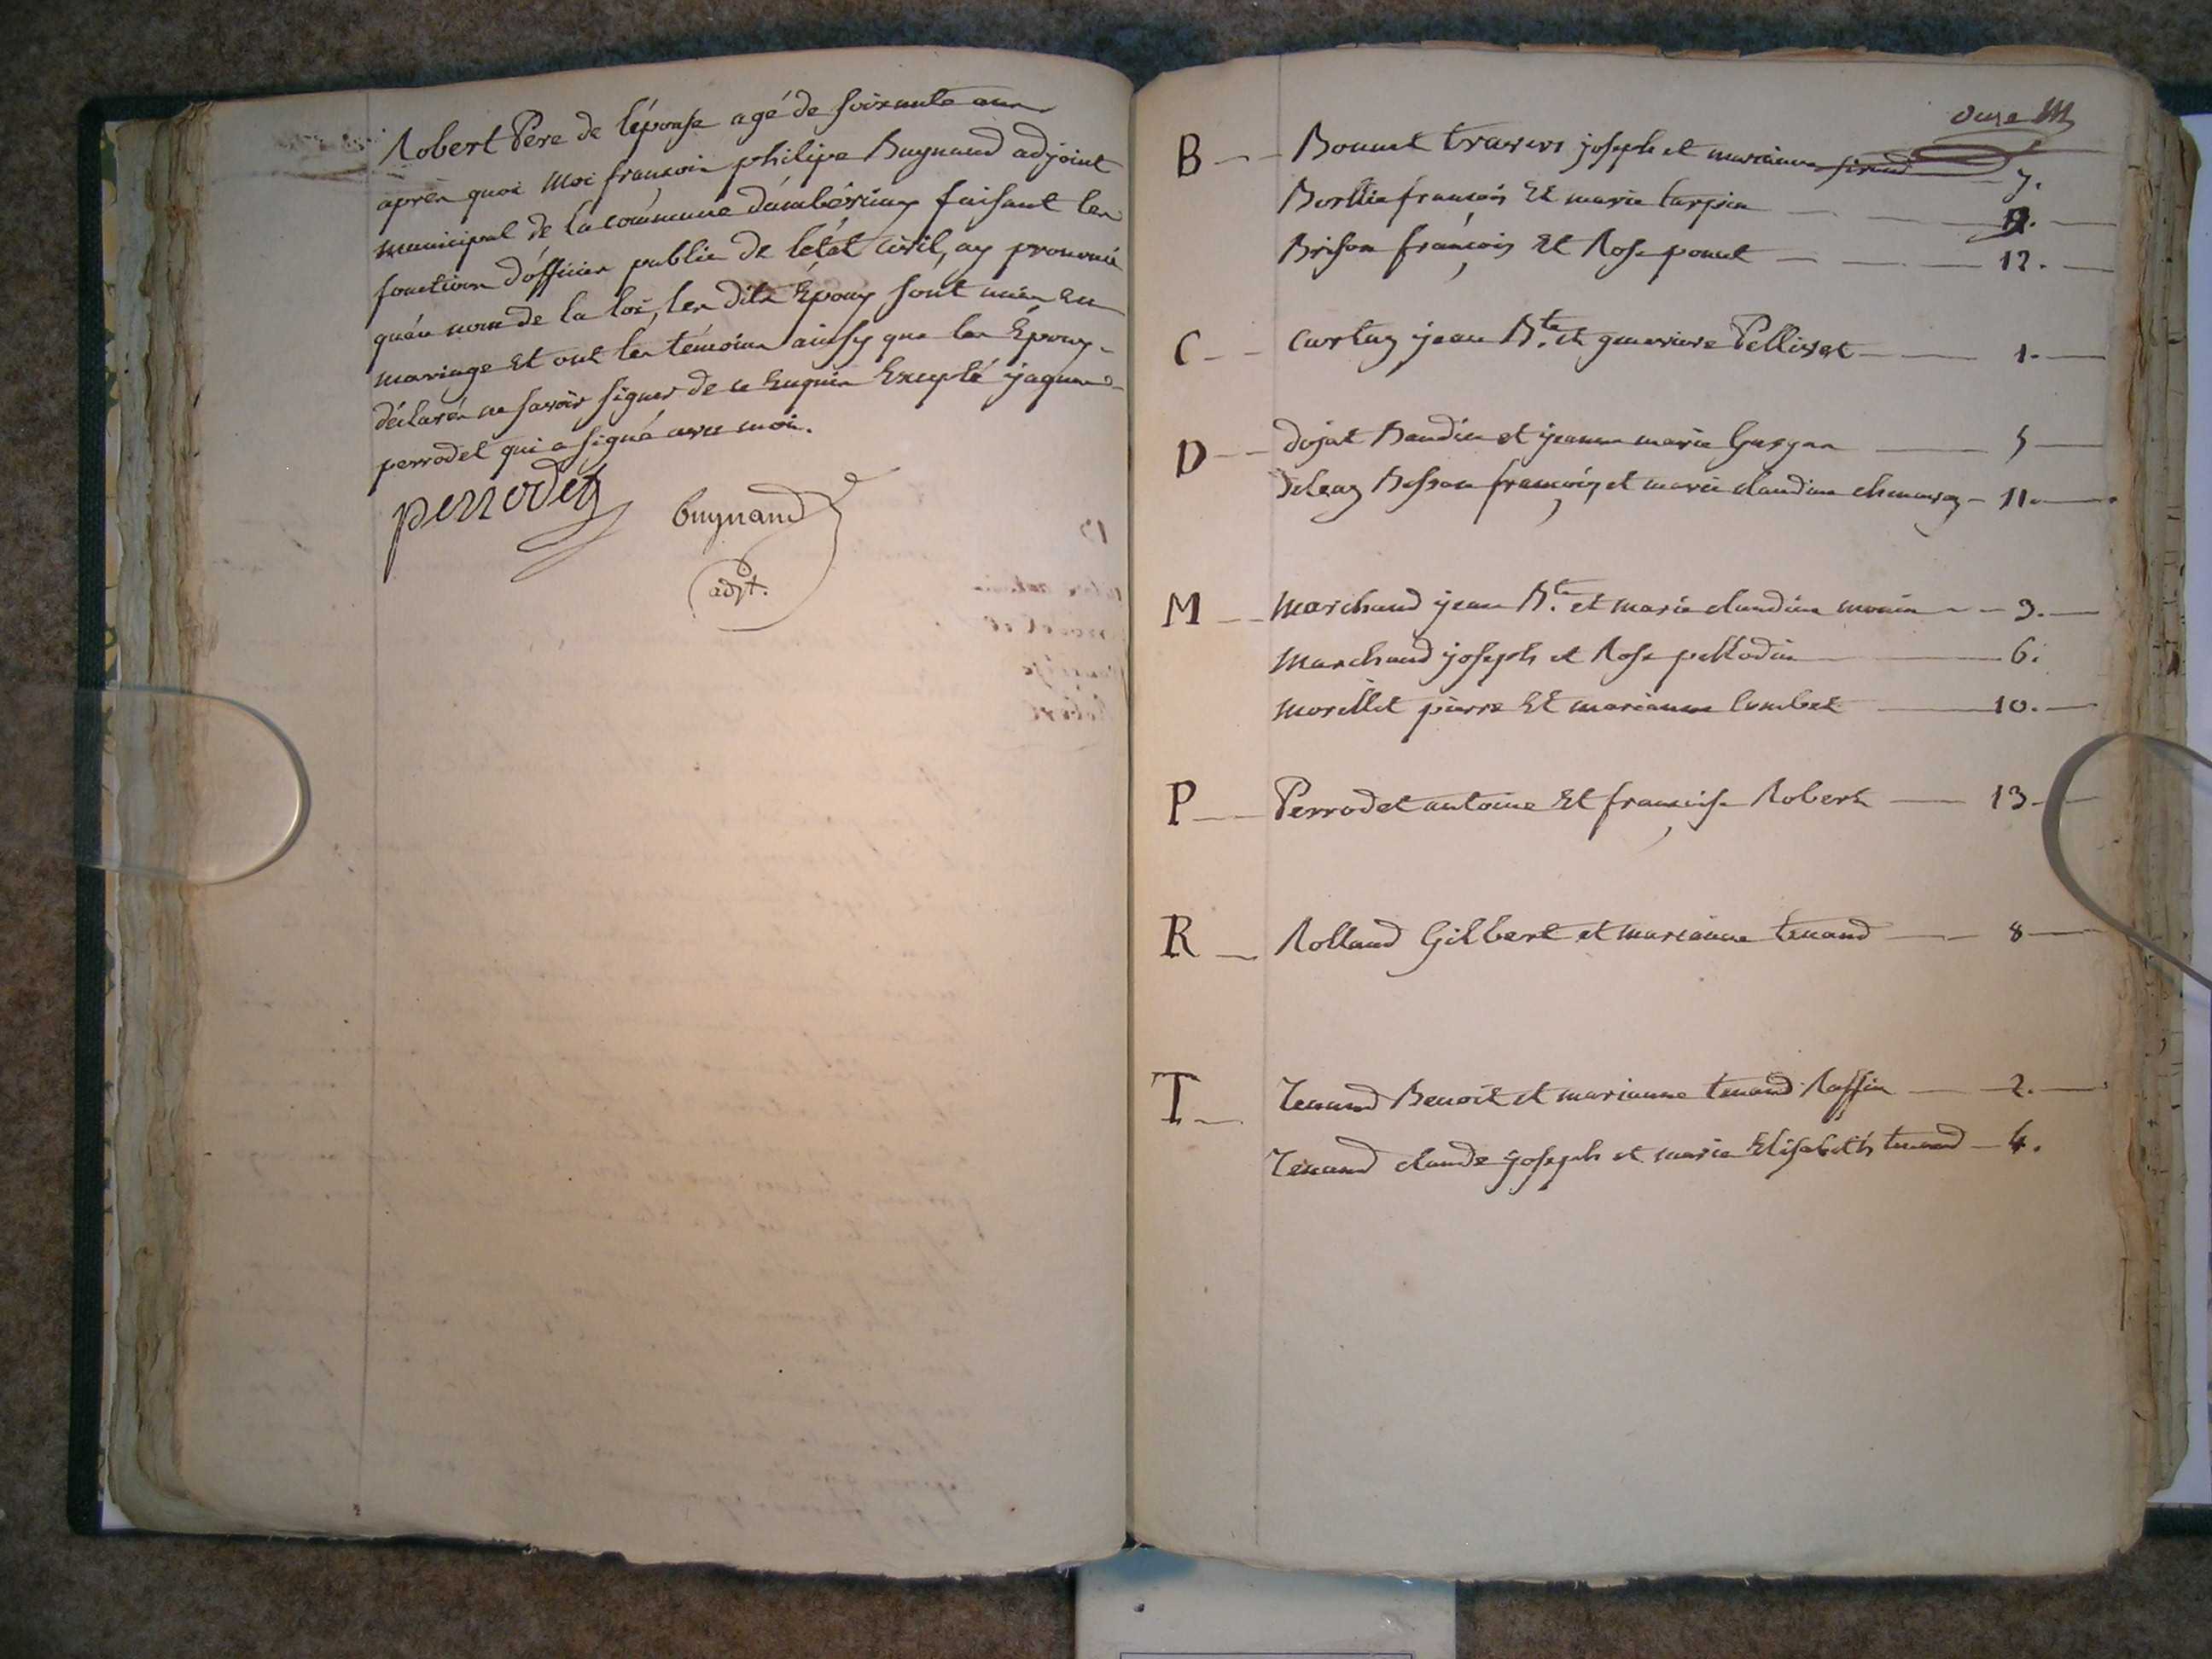 Robert Pere de l'épouse agé de soixante ans
après quoi Moi françois philipe Buynand adjoint
municipal de la commune d'ambérieux faisant les
fonctions d'officier public de l'état civil, ay prononcé
qu'au nom de la loi, les dits Epoux sont unis en
mariage Et ont les témoins ainsy que les Epoux
déclarés ne savoir signer de ce Enquis Excepté jaques
perrodet qui a signé avec moi.
perrodet buynand
adjt.
onze M
B Bonnet travers joseph et marianne 7.
françois Et marie tarpin 9.
Brison françois Et Rose poncet 12.
C Curtay jean Bte et genevieve Pellisset 1.
D dojat Baudin et jeanne marie 5
françois et marie claudine 11.
M Marchand jean Bte et marie claudine monin 3.
Marchand joseph et Rose 6.
morellet pierre Et marianne Combet 10.
P Perrodet antoine Et françoise Robert 13
R Rolland Gilbert et marianne tenand 8
T Tenand Benoit et marianne tenand Raffin 2.
Tenand claude joseph et marie Elisabeth tenand 4.